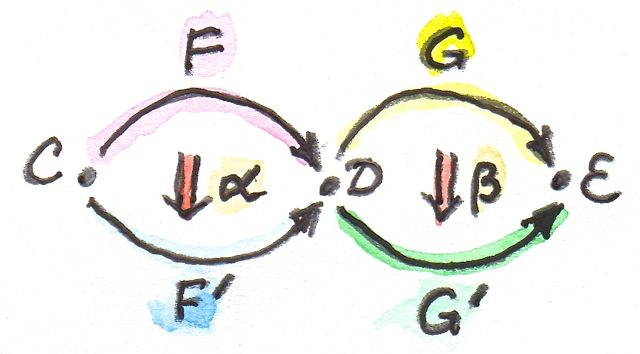 F G
C α D β E
F' G'